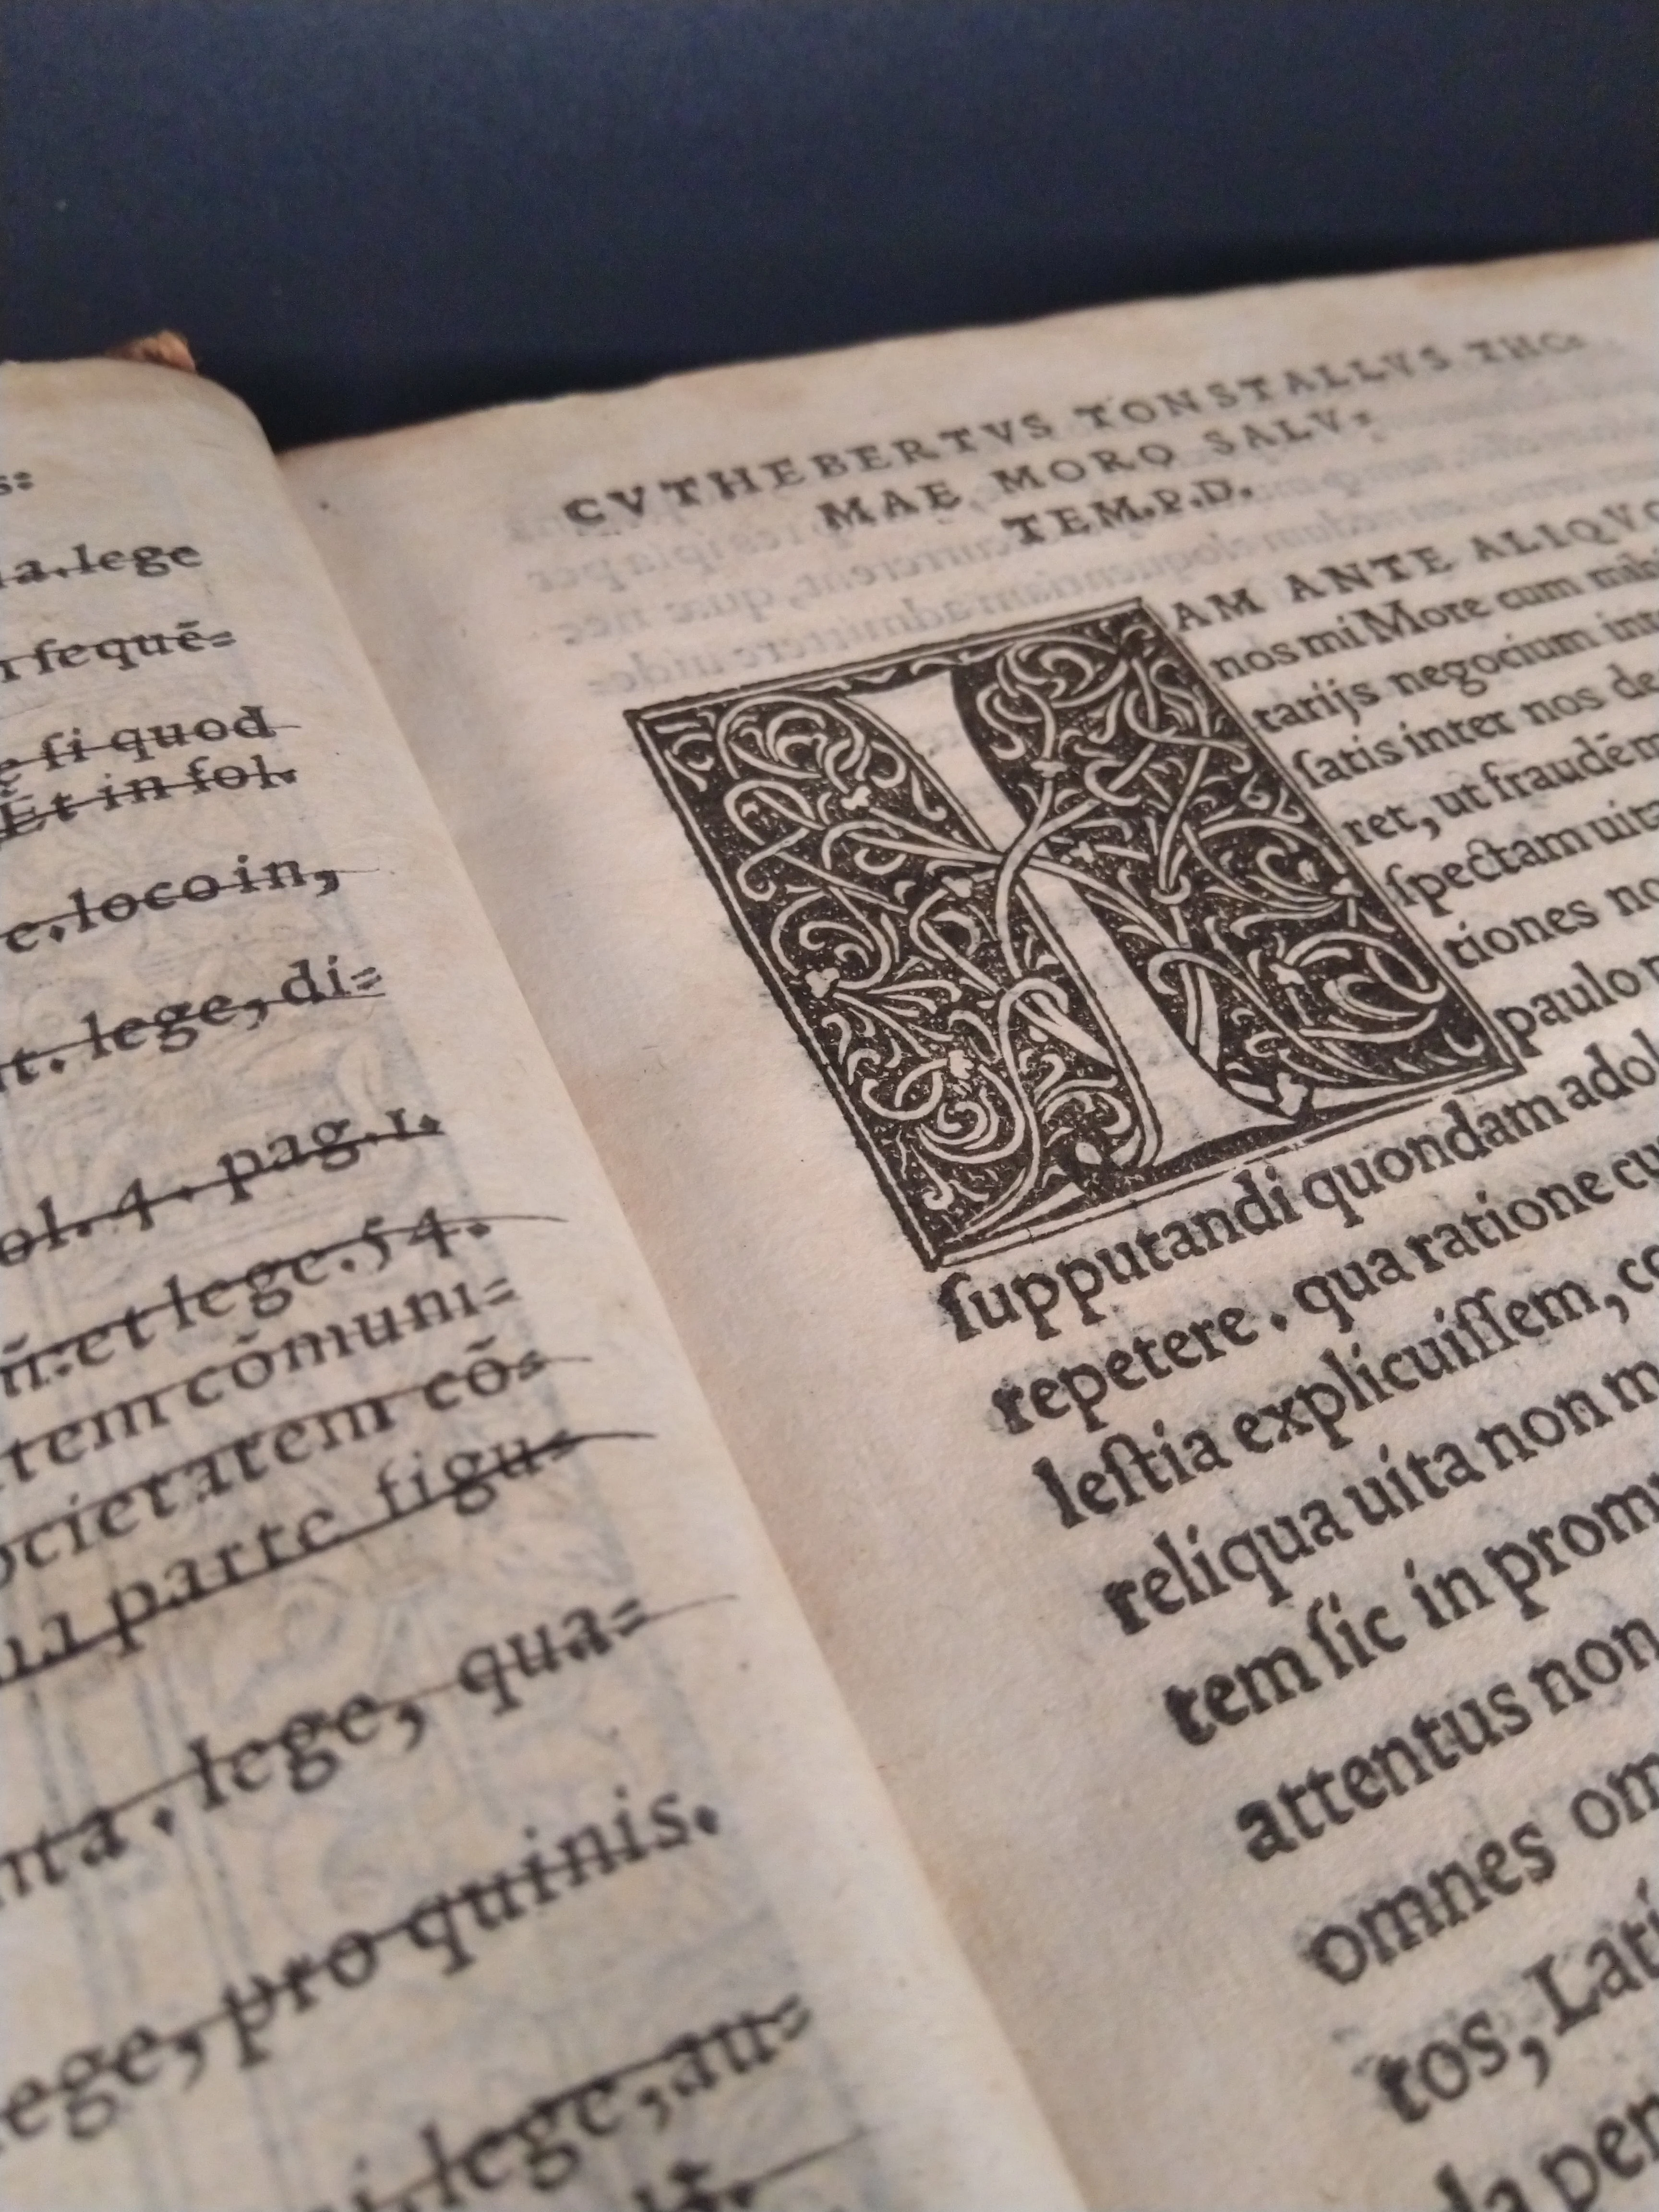 s:
a.lege
ſequē-
ſi quod
Et in fol.
e.loco in,
nt. lege, di-
ol. 4. pag. 1.
et lege. 54.
tem cōmuni-
ocietatem cō-
parte figu-
nta. lege, qua-
lege, pro quinis.
lege, au-
CVTHEBERTVS TONSTALLVS THO-
MAE MORO SALV-
TEM.P.D.
IAM ANTE ALIQVO
nos mi More cum mihi
tarijs negocium int
ſatis inter nos de
ret, ut fraudē m
ſpectam uita
tiones no
paulo
ſupputandi quondam adol
repetere. qua ratione cu
leſtia explicuiſſem, co
reliqua uita non m
tem ſic in prom
attentus non
omnes om
tos, Lati
da per